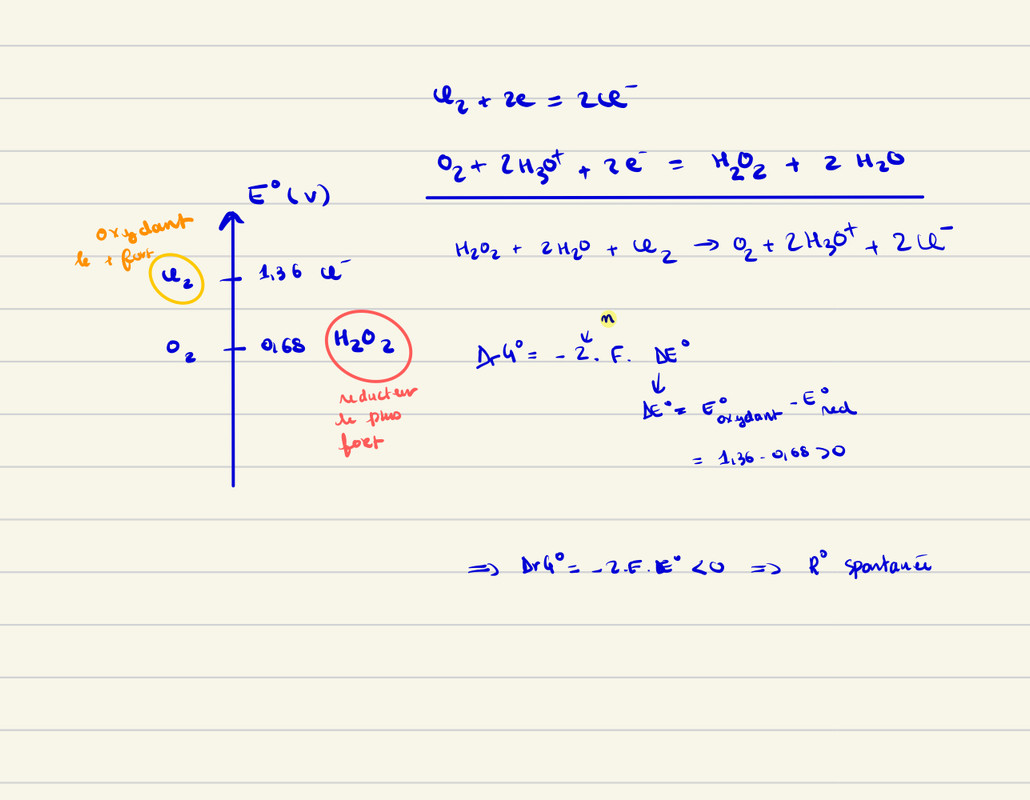 Cl₂ + 2e = 2Cl⁻
O₂ + 2H₃O⁺ + 2e⁻ = H₂O₂ + 2 H₂O
H₂O₂ + 2H₂O + Cl₂ → O₂ + 2H₃O⁺ + 2Cl⁻
E°(V)
oxydant
le + fort
Cl₂ 1,36 Cl⁻
O₂ 0,68 H₂O₂
reducteur
le plus
fort
n
ΔrG° = - 2 . F. ΔE°
ΔE° = E°oxydant - E°red
= 1,36 - 0,68 > 0
⇒ ΔrG° = - 2.F.E° < 0 ⇒ R° spontanée